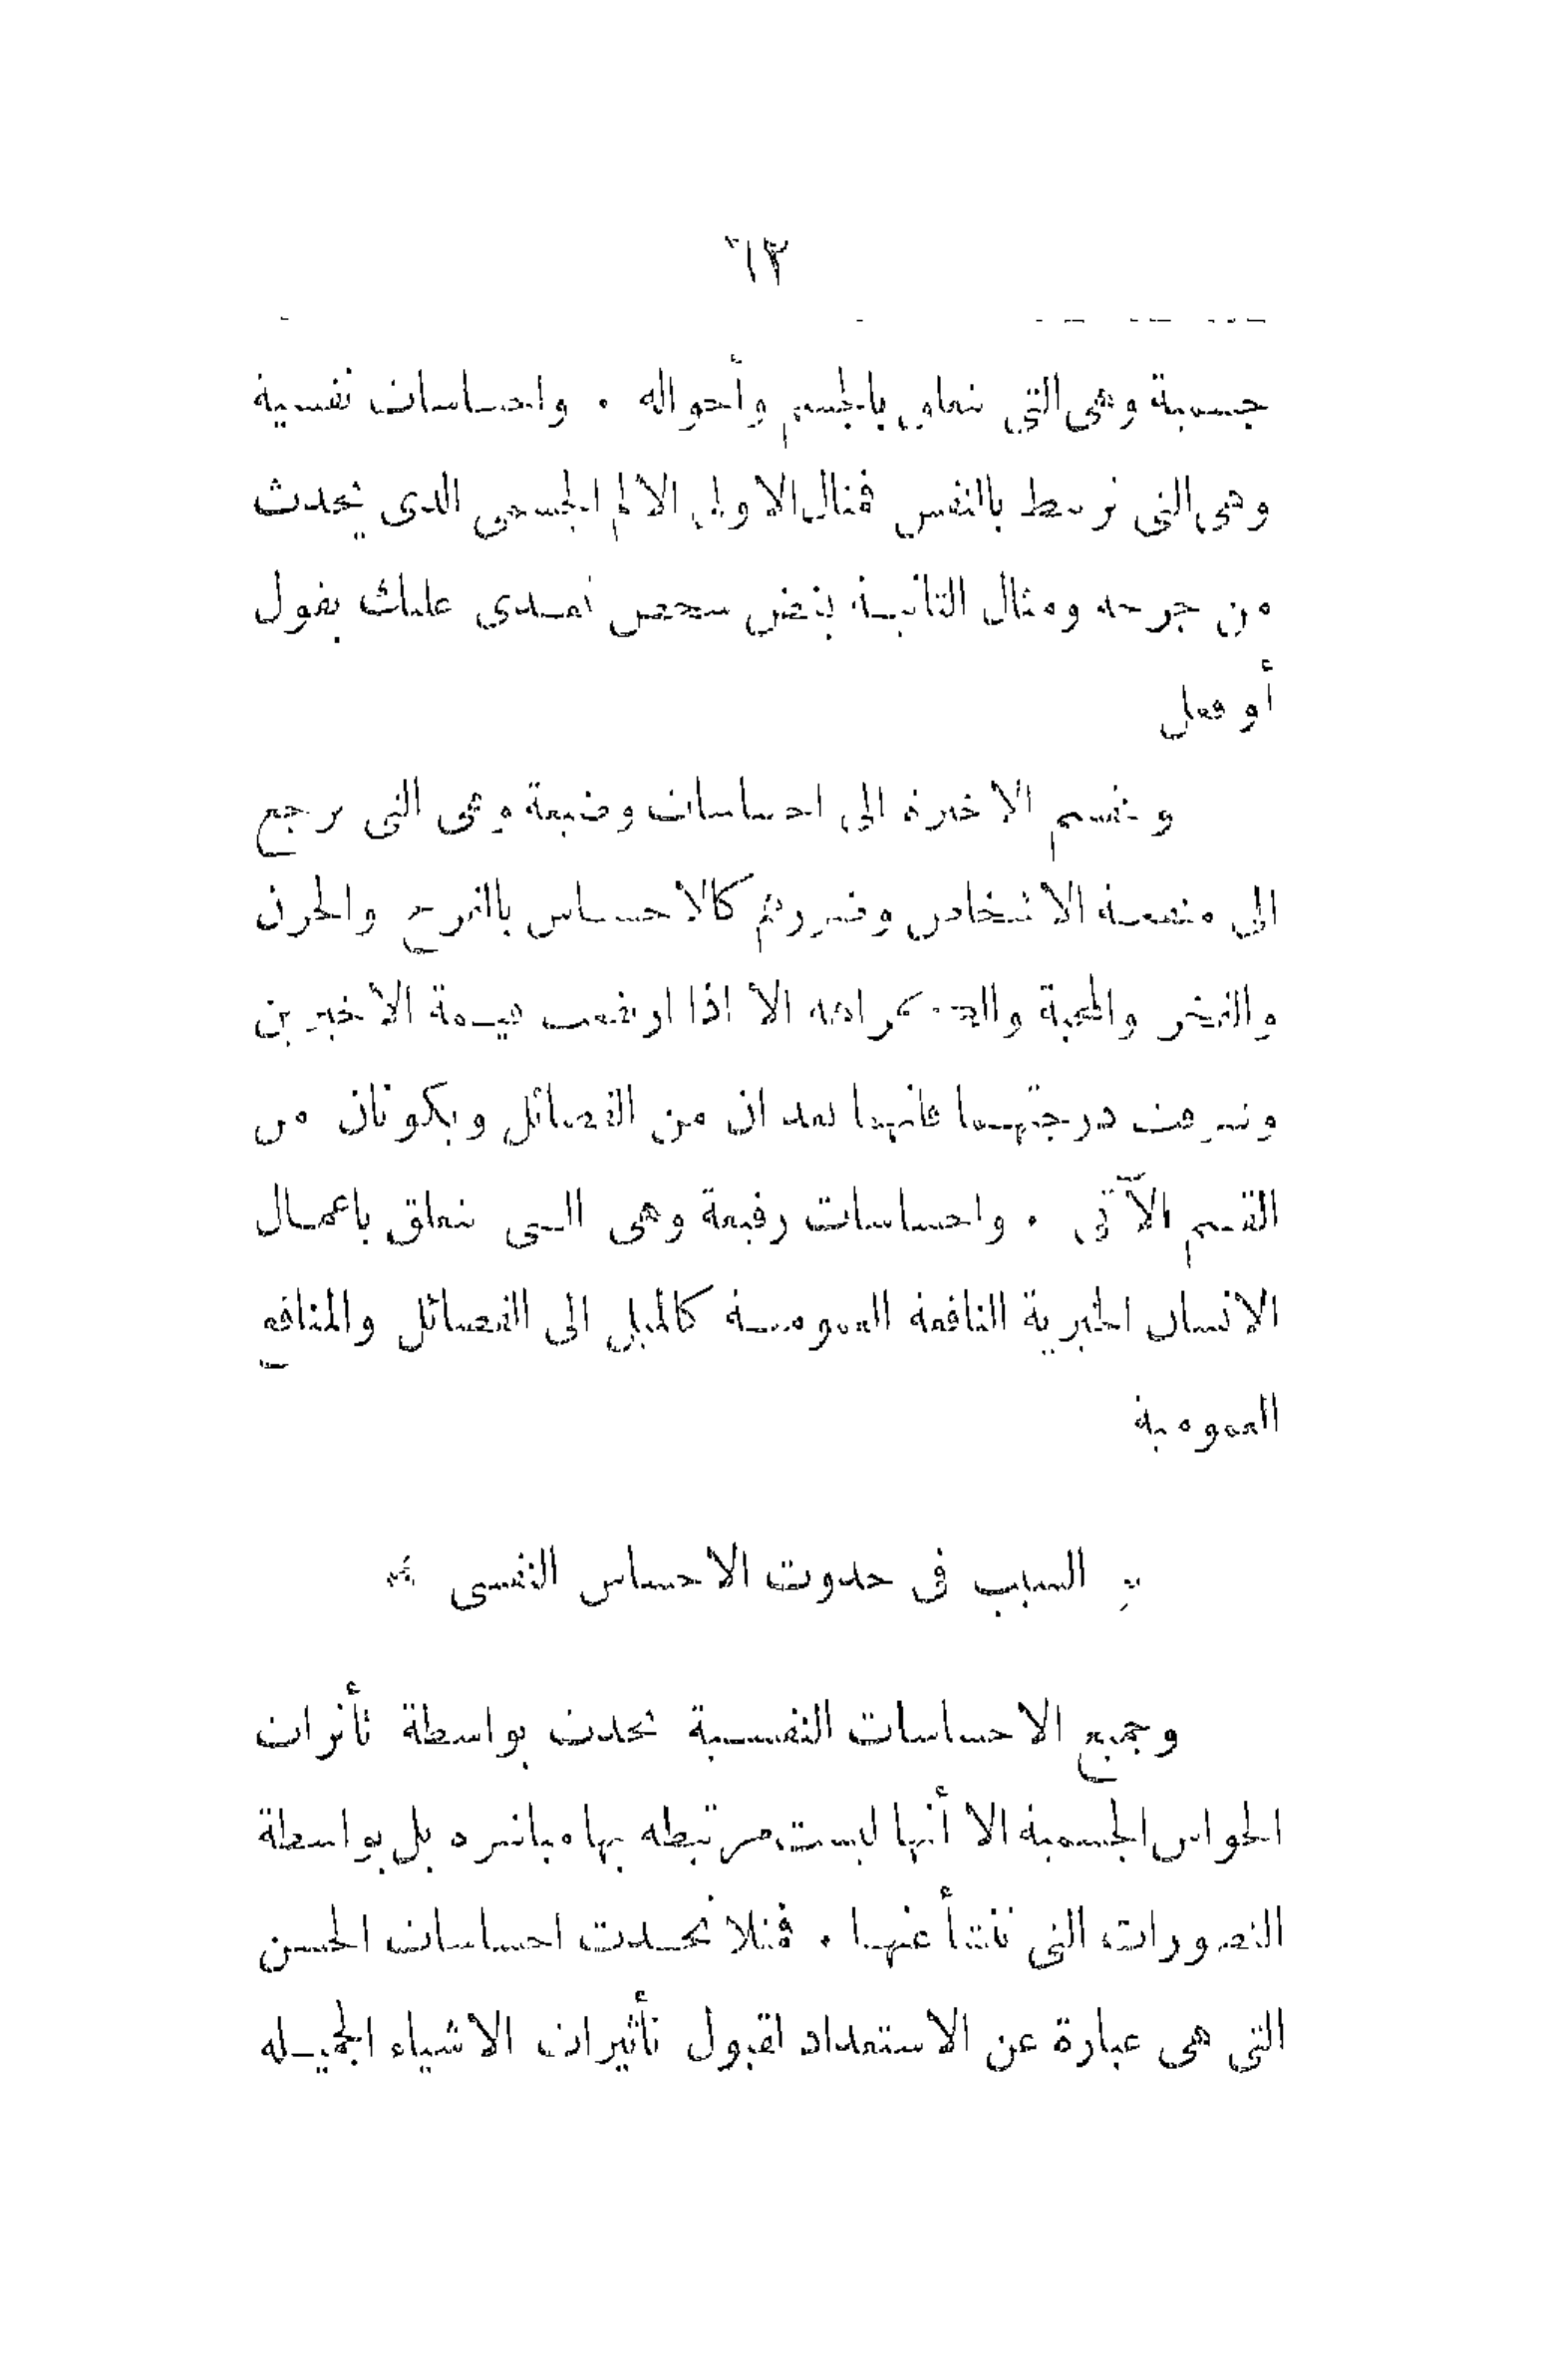 ٦٢
جسمية وهى التى تتعلق بالجسم وأحواله . واحساسات نفسية
وهى التى ترتبط بالنفس فمثال الاولى الالم الجسمى الذى يحدث
من جرحه ومثال الثانية بغض شخص تعدى عليك بقول
أو فعل
وتنقسم الاخيرة الى احساسات وضيعة وهى التى ترجع
الى منفعة الاشخاص وضررهم كالاحساس بالفرح والحزن
والفخر والمحبة والكراهة الا اذا ارتفعت قيمة الأخيرين
وشرفت درجتهما فانهما تعدان من الفضائل ويكونان من
القسم الآتى . واحساسات رفيعة وهى التى تتعلق باعمال
الانسان الخيرية النافعة العمومية كالميل الى الفضائل والمنافع
العمومية
﴿ السبب فى حدوث الاحساس النفسى ﴾
وجميع الاحساسات النفسية تحدث بواسطة تأثرات
الحواس الجسمية الا أنها ليست مرتبطة بها مباشرة بل بواسطة
التصورات التى تنشأ عنها . فمثلا تحدث احساسات الحسن
التى هى عبارة عن الاستعداد لقبول تأثيرات الاشياء الجميلة